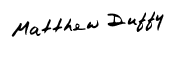 Matthew Duffy